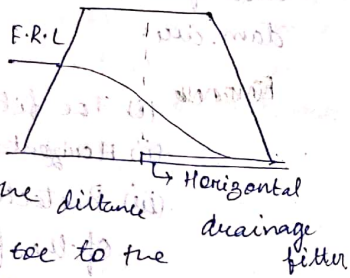 F.R.L
Horizontal
drainage
filter
the distance
toe to the